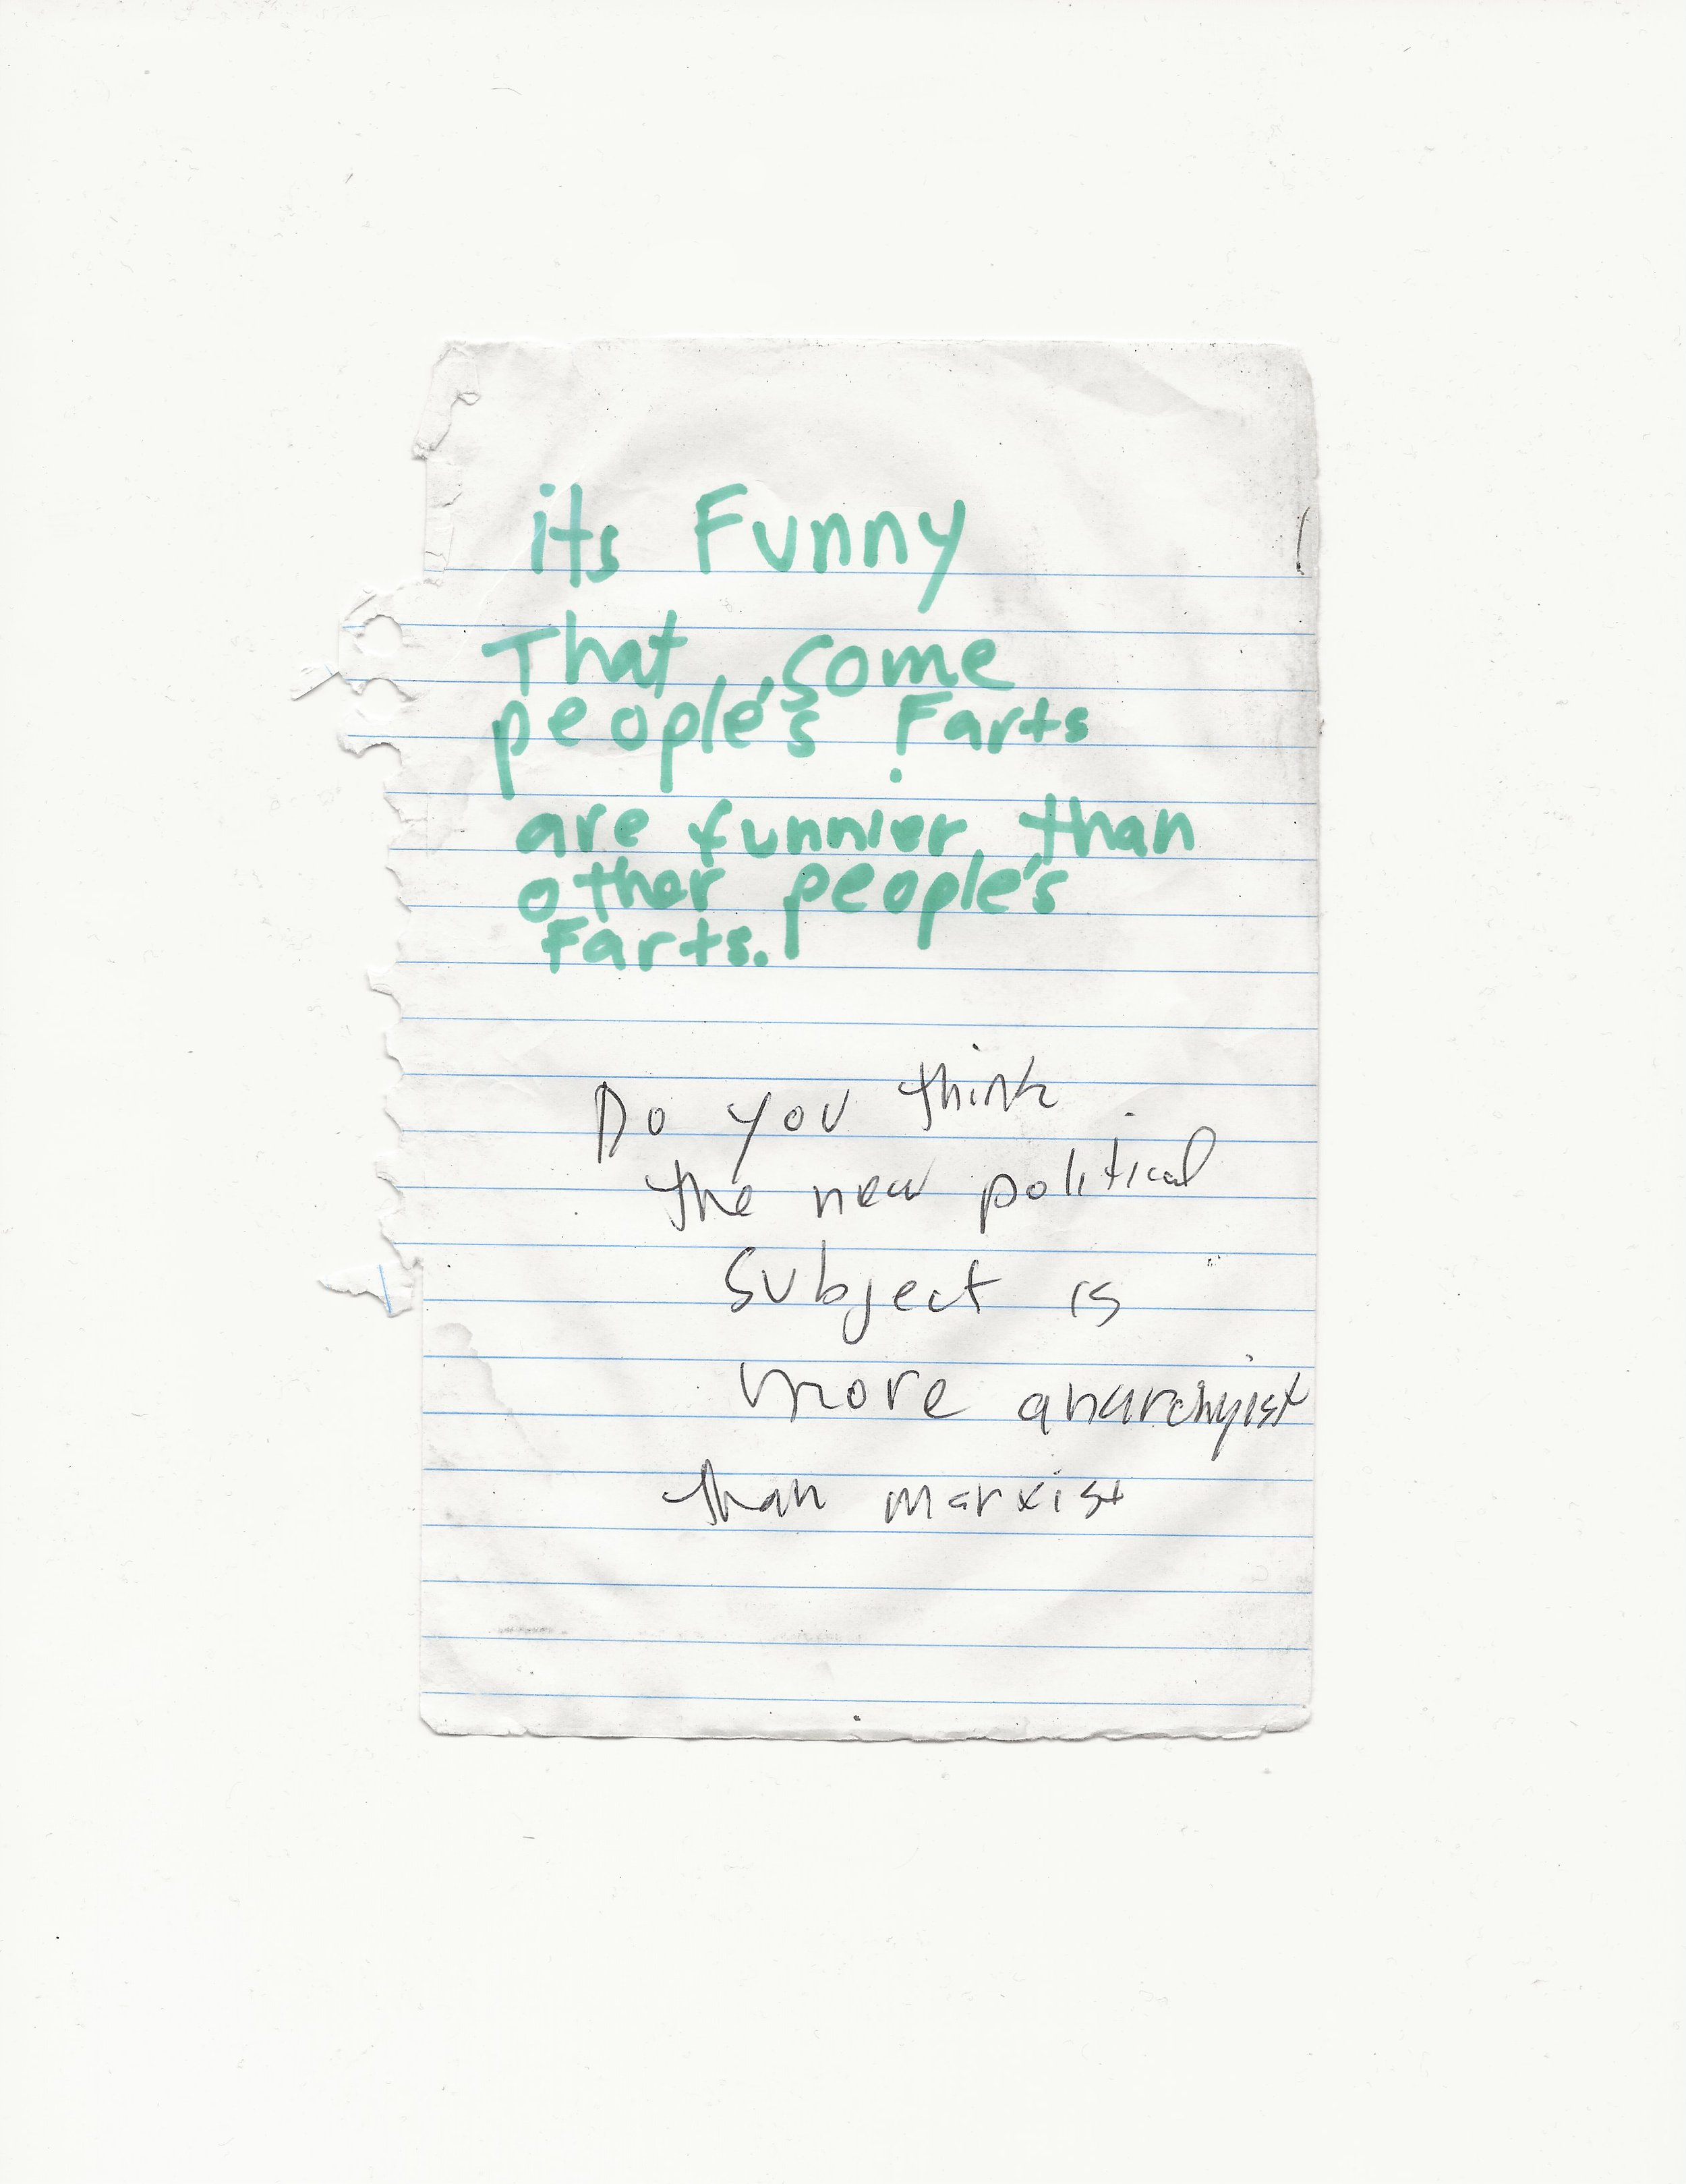 its Funny
That some
people's Farts
are funnier than
other people's
Farts.
Do you think
the new political
subject is
more anarchyist
than marxist